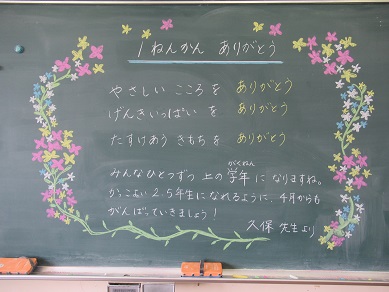 1ねんかん ありがとう
やさしい こころを ありがとう
げんきいっぱい を ありがとう
たすけあう きもちを ありがとう
がくねん
みんなひとつずつ 上の 学年 に なりますね。
かっこよい 2.5年生に なれるように、4月からも
がんばっていきましょう!
久保 先生より